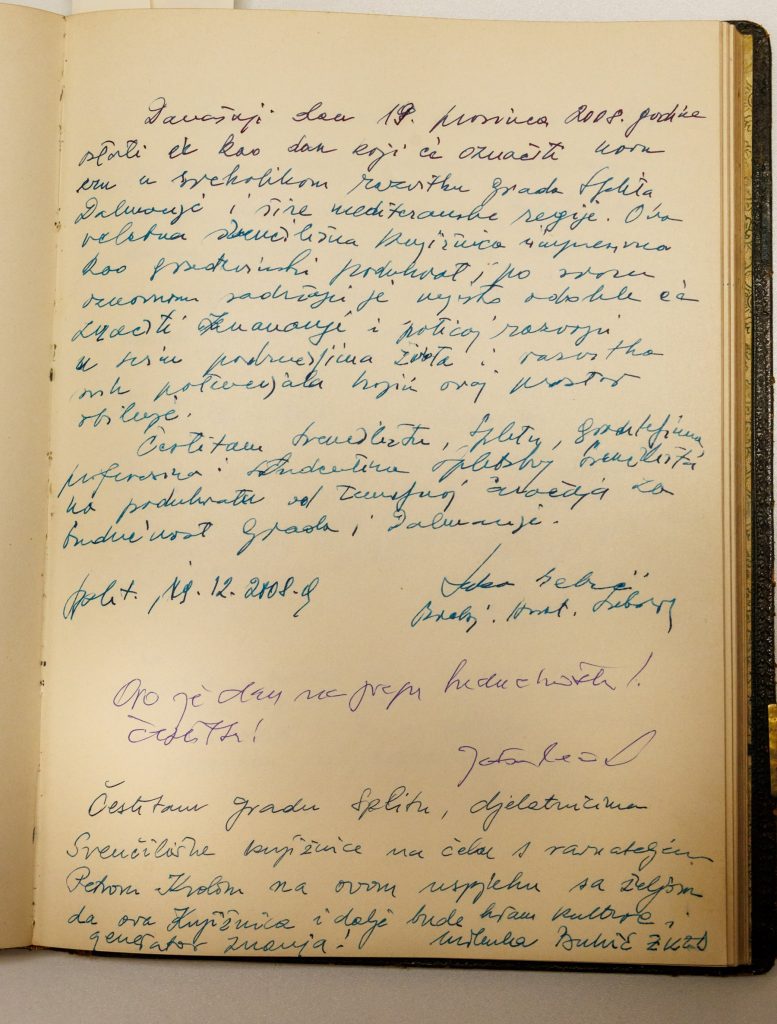 Današnji dan 19. prosinca 2008. godine
ostati će kao dan koji će označiti novu
eru u svekolikom razvitku grada Splita
Dalmacije i šire mediteranske regije. Ova
velebna Sveučilišna knjižnica impresivna
kao građevinski poduhvat i po svom
sadržaju je mjesto odakle će
značiti i poticaj razvoju
u svim područjima života i razvitka
svih potencijala kojim ovaj prostor
obiluje.
Čestitam Sveučilištu, Splitu, graditeljima
profesorima i studentima splitskog Sveučilišta
na poduhvatu od značaja za
budućnost grada i Dalmacije.
Split, 19.12.2008.g
Luka Bebić
Predsj. Hrvat. Sabora
Ovo je dan na pragu budućnosti!
Čestitke!
Čestitam gradu Splitu, djelatnicima
Sveučilišne knjižnice na čelu s ravnateljem
Petrom Krolom na ovom uspjehu sa željom
da ova Knjižnica i dalje bude hram kulture i
generator znanja! Milenka Bukić ŽKZD